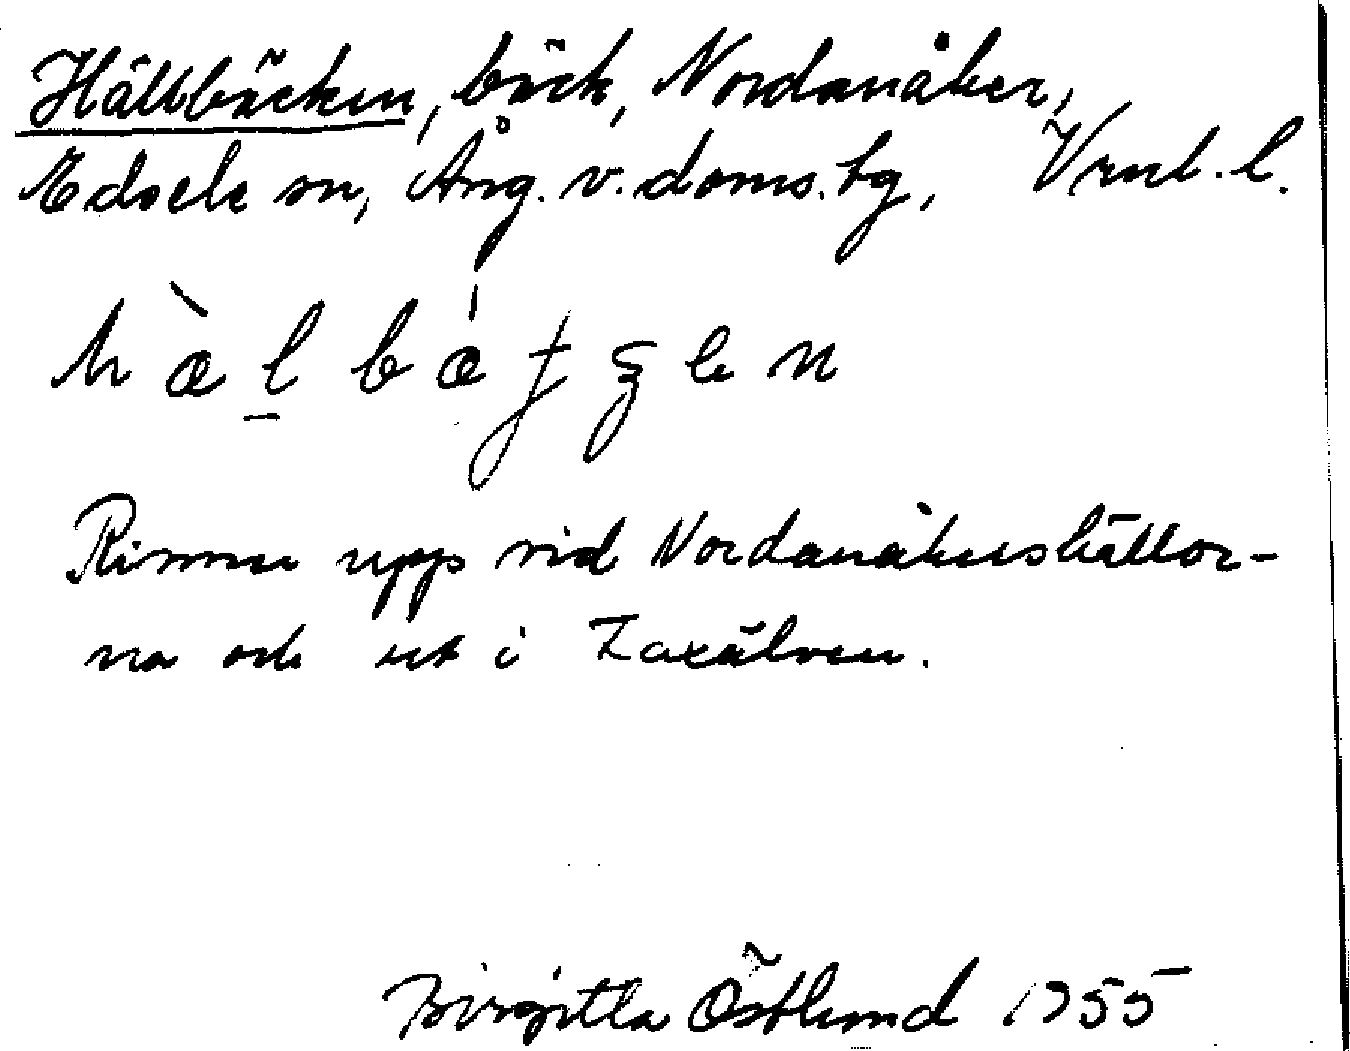 Hällbäcken, bäck, Nordanåker,
Edsele sn, Ång. v. doms. tg, Vrnl. l.
Rinner upp vid Nordanåkershällor-
na och ut i Faxälven.
Birgitta Östlund 1955